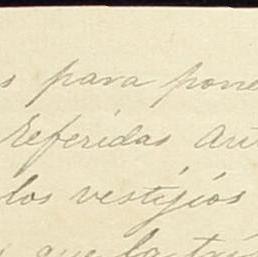 s para pone
referidas au
los vestijios
que la tri